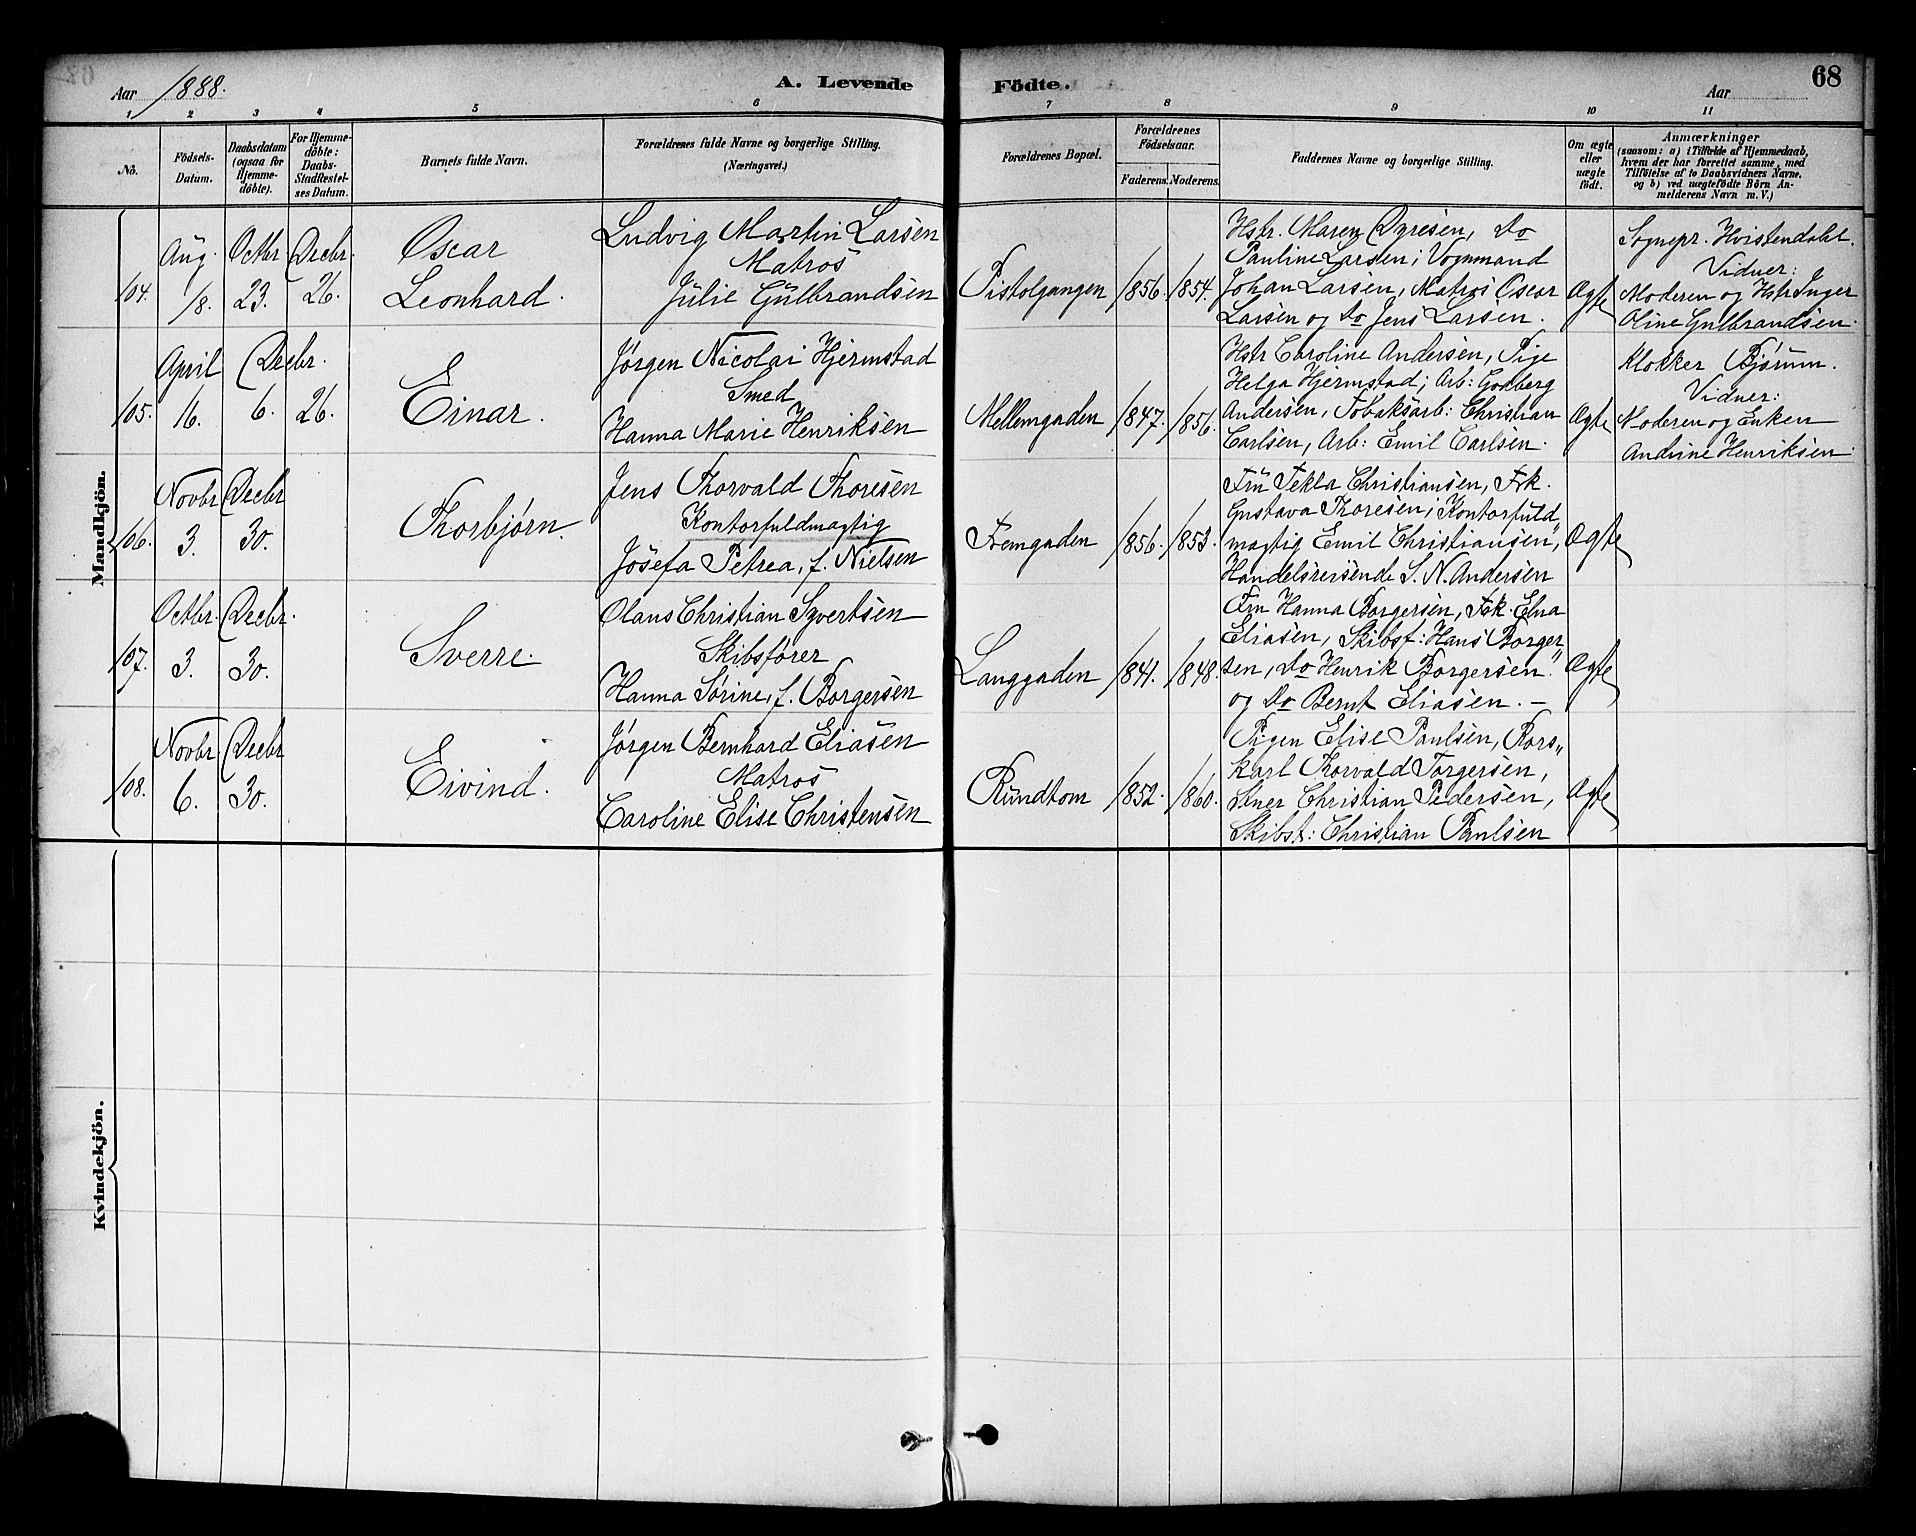 Aar 1888.
A. Levende
Födte.
Aar
68
1 2 3 4 5 6 7 8 9 10 11
No.
Födsels-
Datum.
Daabsdatum
(ogsaa for
Hjemme-
döbte).
For Hjemme-
döbte:
Daabs-
Stadfæstel-
ses Datum.
Barnets fulde Navn.
Forældrenes fulde Navne og borgerlige Stilling.
(Næringsvei.)
Forældrenes Bopæl.
Forældrenes
Födselsaar.
Faderens. Moderens.
Faddernes Navne og borgerlige Stilling.
Om ægte
eller
uægte
födt.
Anmærkninger
(saasom: a) i Tilfælde af Hjemmedaab,
hvem der har forrettet samme, med
Tilföielse af to Daabsvidners Navne,
og b) ved uægtefödte Börn An-
melderens Navn m. V.)
Mandkjön.
104.
Aug.
18.
Octbr
23.
Decbr.
26.
Oscar
Leonhard.
Ludvig Martin Larsen
Matros
Julie Gulbrandsen
Pistolgangen
1856. 1854.
Hstr. Maren Dyresen, Do
Pauline Larsen; Vognmand
Johan Larsen, Matros Oscar
Larsen og Do Jens Larsen.
Ægte
Sognepr. Hvistendahl.
Vidner:
Moderen og Hstr Inger
Oline Gulbrandsen.
105.
April
16.
Decbr.
6. 26.
Einar.
Jørgen Nicolai Hjermstad
Smed
Hanna Marie Henriksen
Mellemgaden
1847. 1856.
Hstr Caroline Andersen, Pige
Helga Hjermstad; Arb: Gotberg
Andersen, Tobaksarb: Christian
Carlsen, Arb: Emil Carlsen.
Ægte
Klokker Bjørum.
Vidner:
Moderen og Enken
Andrine Henriksen.
106.
Novbr
3.
Decbr
30.
Thorbjørn.
Jens Thorvald Thoresen
Kontorfuldmægtig
Josefa Petrea, f. Nielsen
Fremgaden
1856. 1853.
Fru Tekla Christiansen, Frk.
Gustava Thoresen; Kontorfuld„
mægtig Emil Christiansen,
Handelsreisende S. N. Andersen
Ægte
107.
Octbr.
3.
Decbr.
30.
Sverre.
Olaus Christian Syvertsen
Skibsfører
Hanna Sørine, f. Borgersen
Langgaden
1841. 1848.
Fru Hanna Borgersen, Frk. Elna
Eliasen, Skibsf: Hans Borger„
sen, Do Henrik Borgersen
og Do Bernt Eliasen. —
Ægte
108.
Novbr.
6.
Decbr
30.
Eivind.
Jørgen Bernhard Eliasen
Matros
Caroline Elise Christensen
Rundtom
1852. 1860.
Pigen Elise Paulsen, Rors„
karl Thorvald Torgersen,
Stuer Christian Pedersen,
Skibst: Christian Paulsen
Ægte
Kvindekjön.